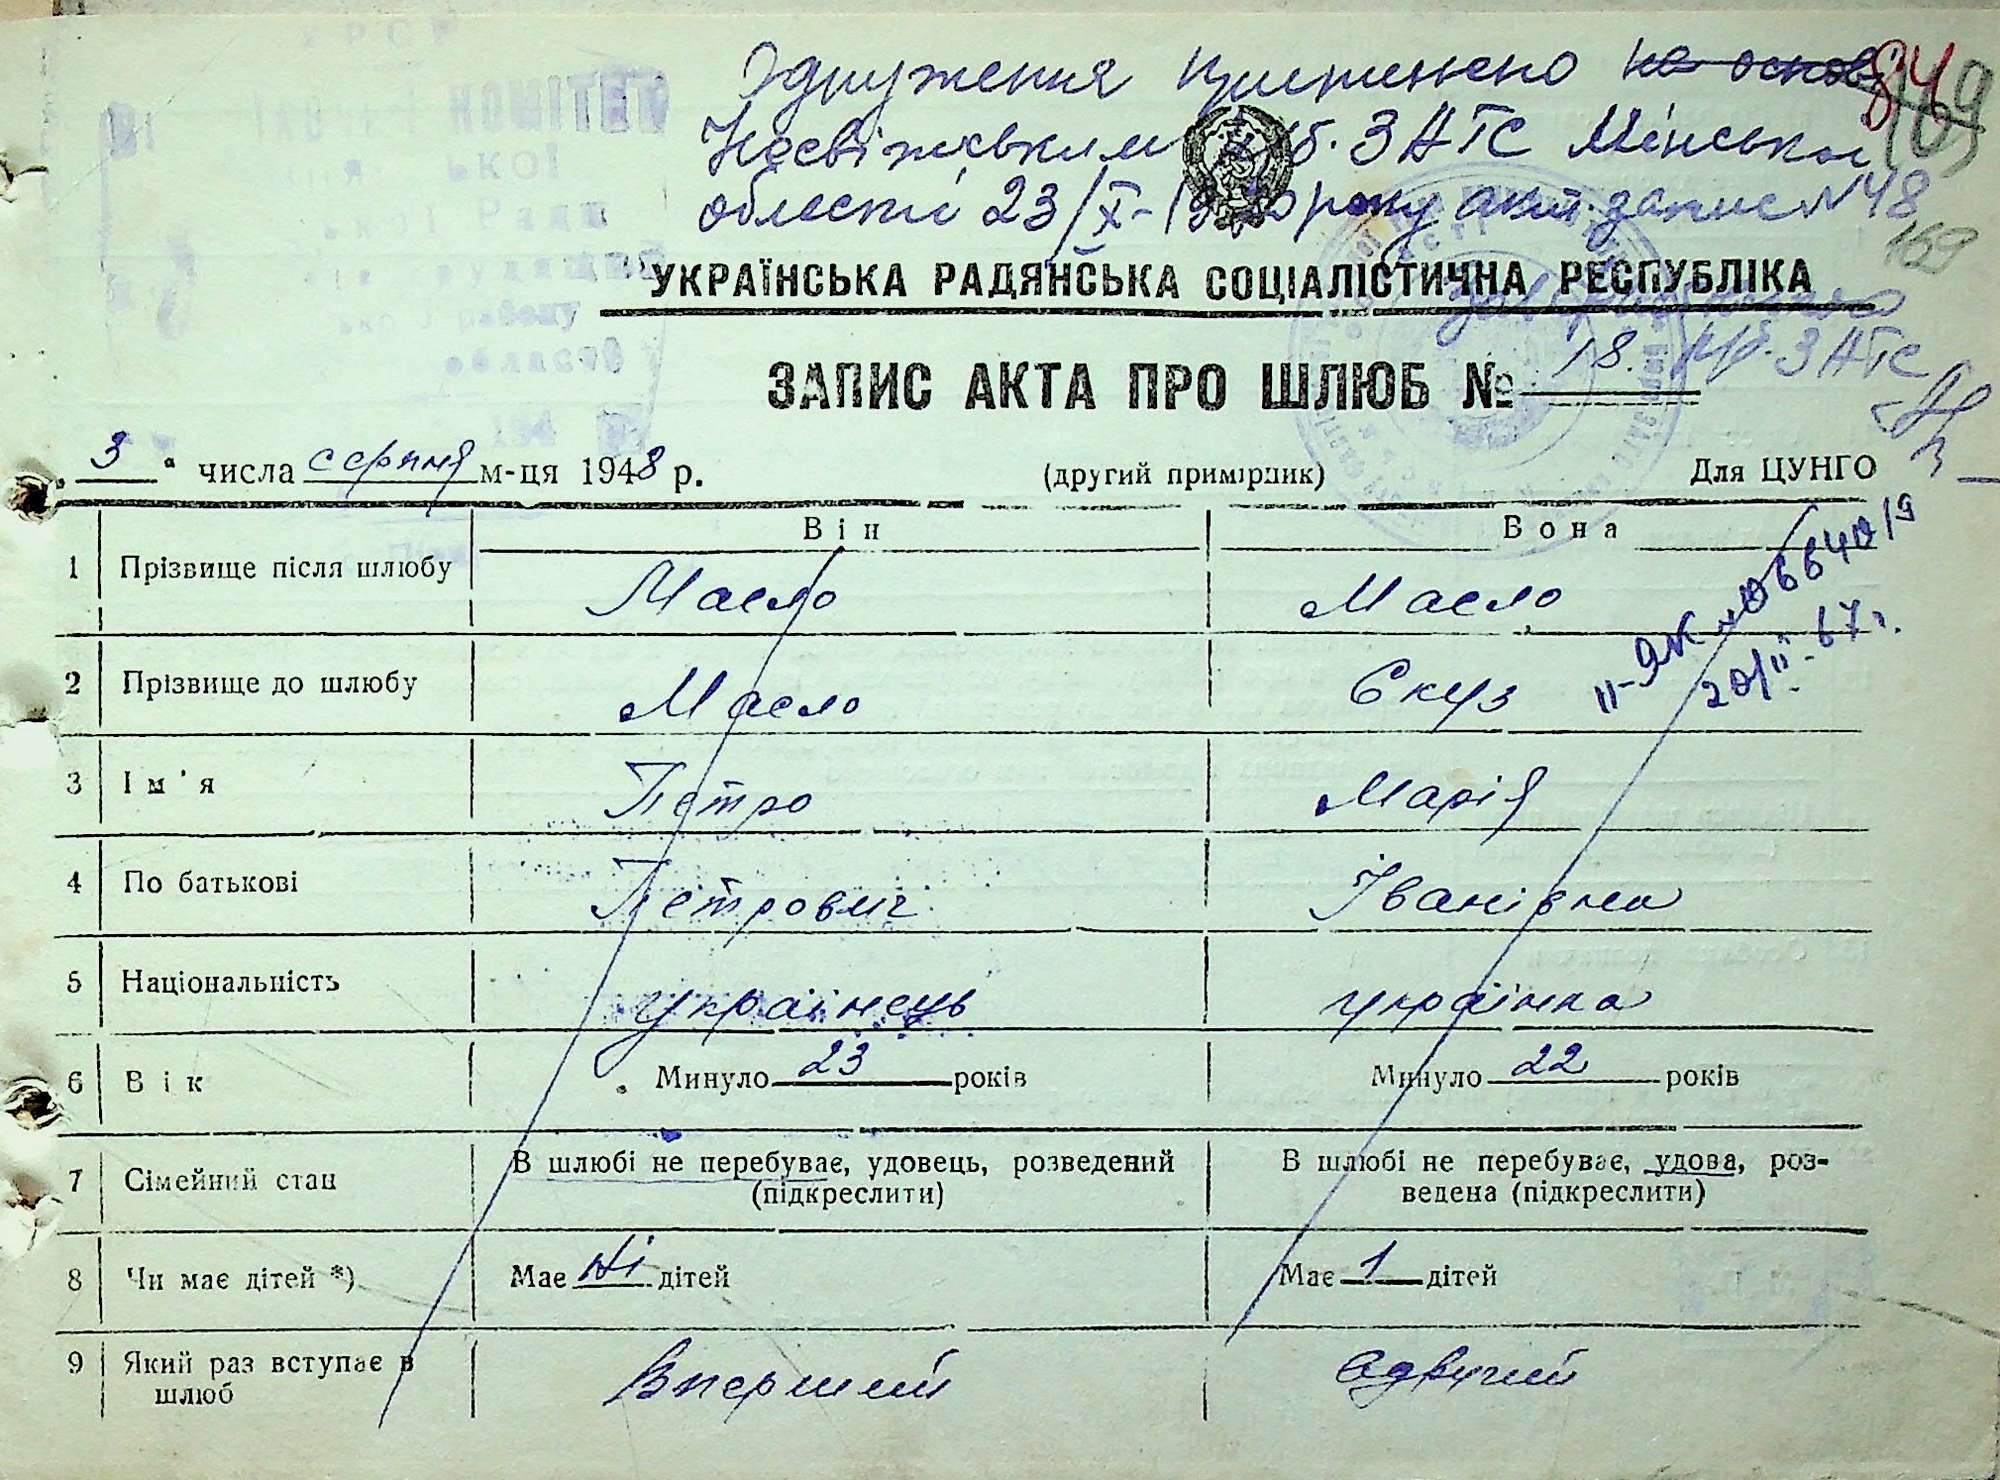 84
169
Одруження припинено на основ
Несвіжським рб. ЗАГС Мінської
області 23/X-1950 року акт. запис №48
169
УКРАЇНСЬКА РАДЯНСЬКА СОЦІАЛІСТИЧНА РЕСПУБЛІКА
рб. ЗАГС
ЗАПИС АКТА ПРО ШЛЮБ № 18.
"3" числа серпня м-ця 1948 р. (другий примірник) Для ЦУНГО
Він Вона
1 Прізвище після шлюбу Масло Масло
II-ЯК №066401/9
20/II-67 г.
2 Прізвище до шлюбу Масло Єкуз
3 Ім'я Петро Марія
4 По батькові Петрович Іванівна
5 Національність українець українка
6 Вік Минуло 23 років Минуло 22 років
7 Сімейний стан В шлюбі не перебуває, удовець, розведений (підкреслити) В шлюбі не перебуває, удова, роз-
ведена (підкреслити)
8 Чи має дітей *) Має ні дітей Має 1 дітей
9 Який раз вступає в шлюб Вперший Вдвучий